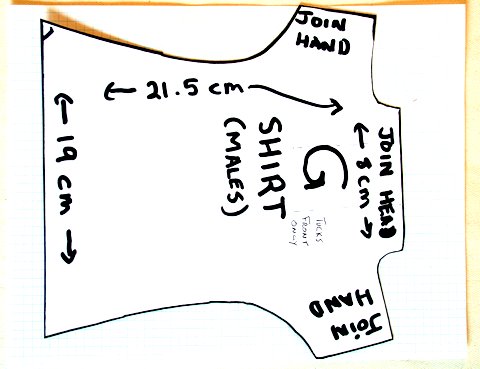 JOIN
HAND
← 21.5 cm →
← 19 cm →
SHIRT
(MALES)
G
TUCKS
FRONT
ONLY
JOIN HEAD
← 8 cm →
JOIN
HAND